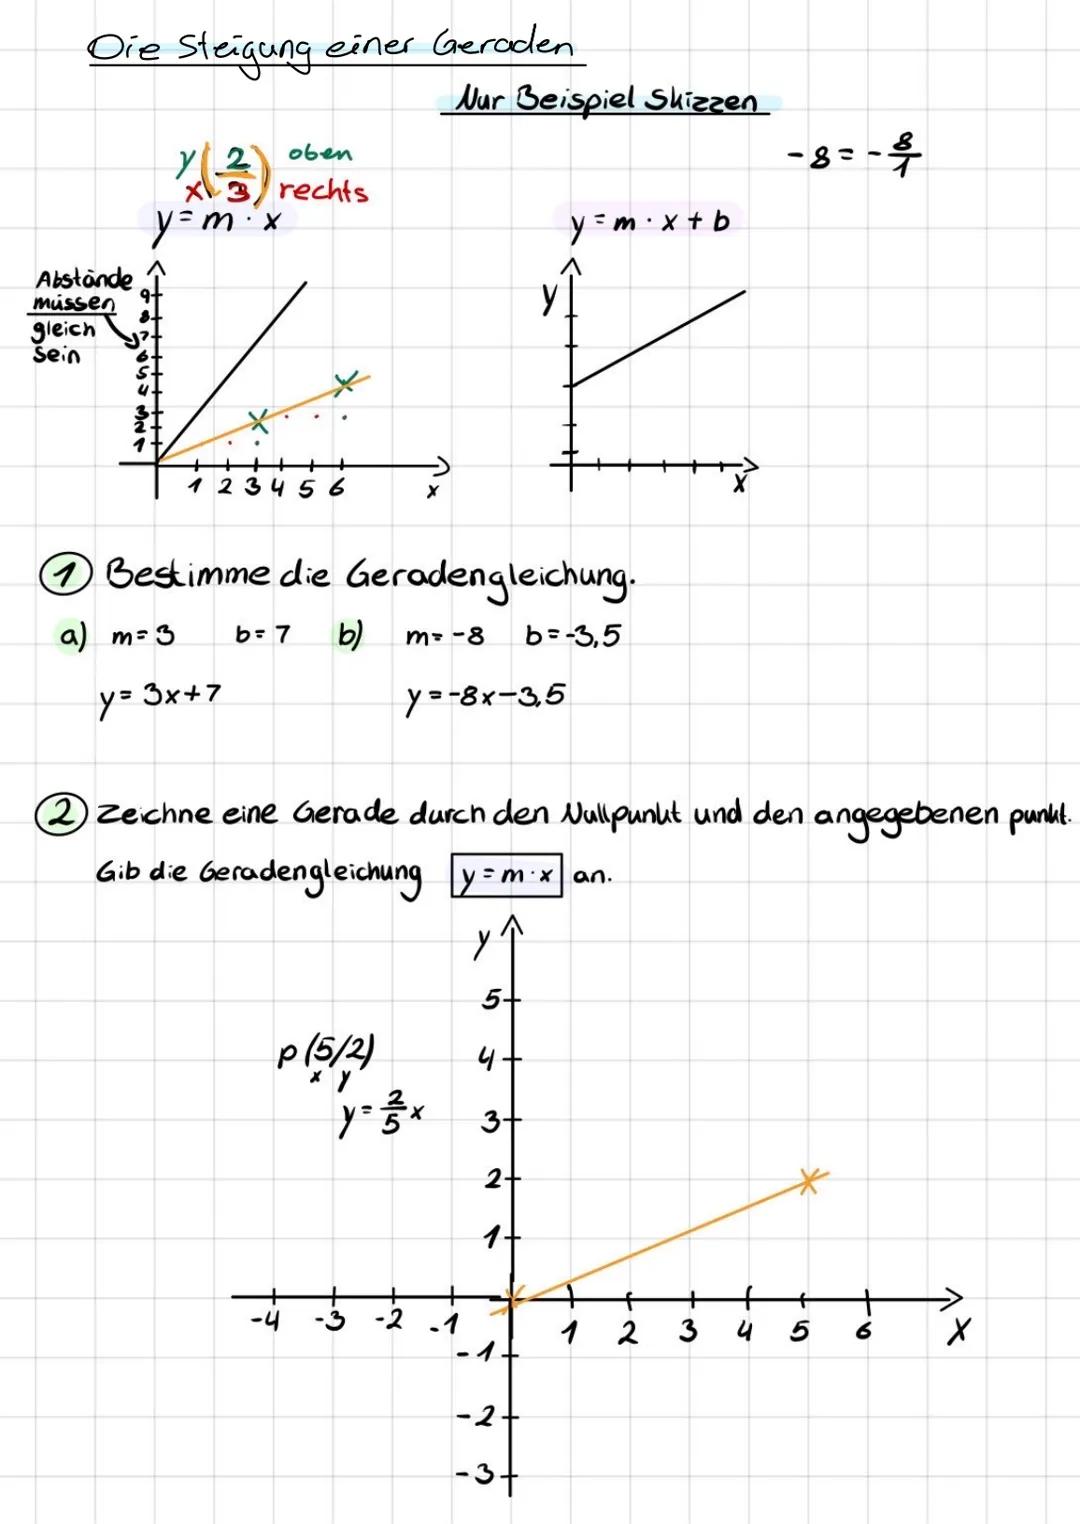 Die Steigung einer Geraden
Nur Beispiel Skizzen
y 2 oben
x 3 rechts
-8 = -8/1
y = m · x
y = m · x + b
Abstände
müssen
gleich
sein
9
8
7
6
5
4
3
2
1
1 2 3 4 5 6
x
y
x
1 Bestimme die Geradengleichung.
a) m = 3 b = 7 b) m = -8 b = -3,5
y = 3x+7 y = -8x-3,5
2 Zeichne eine Gerade durch den Nullpunkt und den angegebenen punkt.
Gib die Geradengleichung y = m · x an.
y
5
p (5/2) 4
x y
y = 2/5 x 3
2
1
-4 -3 -2 -1 1 2 3 4 5 6 X
-1
-2
-3